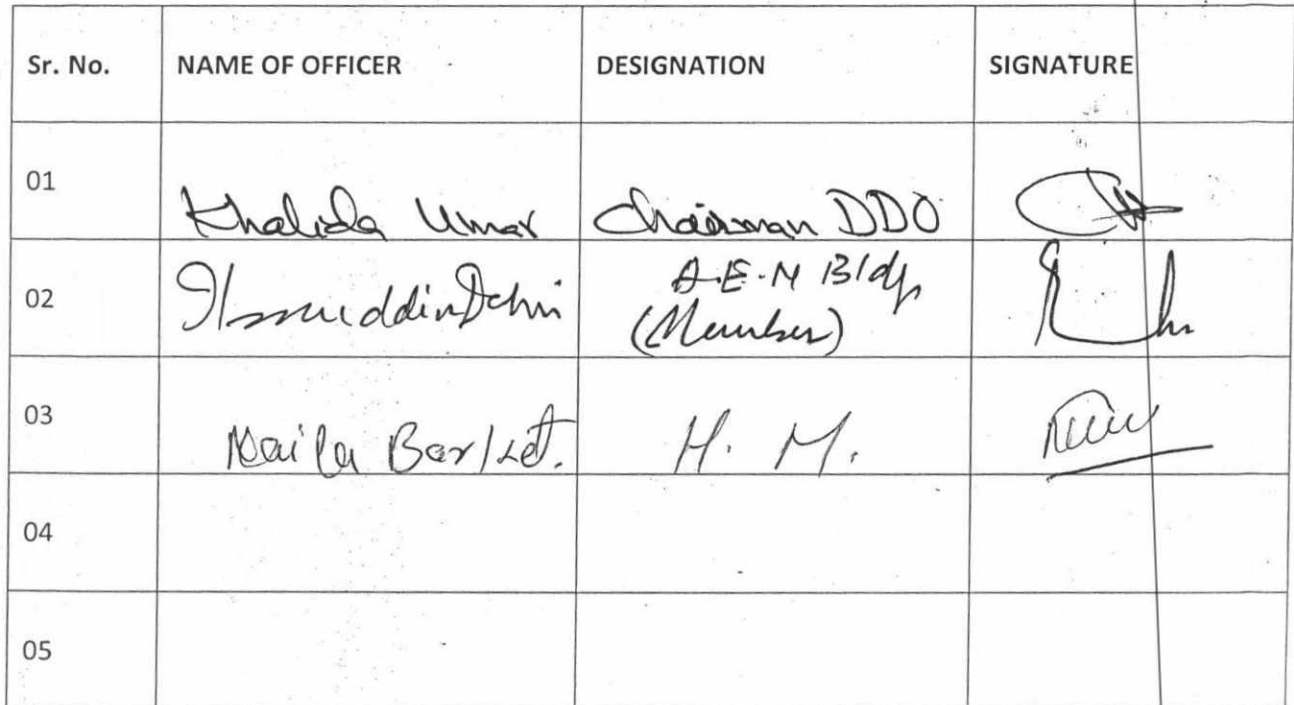 Sr. No. NAME OF OFFICER DESIGNATION SIGNATURE
01 Khalida Umar Chairman DDO
02 A.E.N Bldg
(Member)
03 Naila Barket. H. M.
04
05